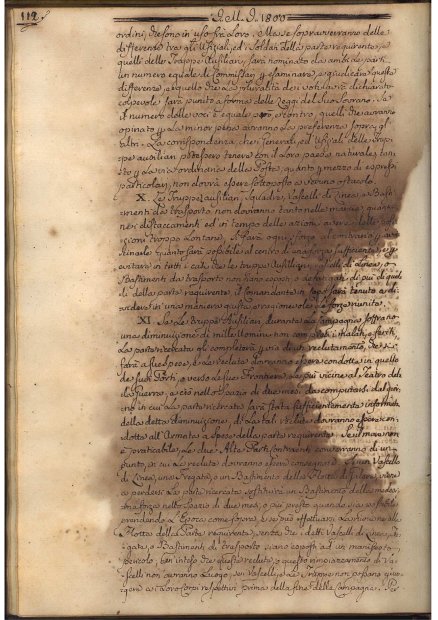 112
A. M. D. 1800
ordini, che sono in uso fra Loro. Ma se sopravverranno delle
differenze tra gli Ufficiali, ed i Soldati della parte requirente, e
quelli delle Truppe Ausiliari, sarà nominato da ambi le parti
un numero eguale di Commissari p esaminare, e giudicare queste
differenze, e quello che a la pluralità dei voti sarà dichiarato
colpevole sarà punito a forma delle Leggi del suo Sovrano. Se
il numero delle voci è eguale pro, e contro, quelli che avranno
opinato p la minor pena avranno la preferenza sopra gl'
altri. La corrispondenza, che i Generali, ed Ufficiali delle Truppe
ausiliari potessero tenere con il loro paese naturale, tanto
p la via ordinaria delle Poste, quanto p mezzo di espressi
particolari, non dovrà essere sottoposta a veruno ostacolo.
X. Le Truppe Ausiliari, Squadre, Vascelli di Linea, e Bastimenti
da trasporto non dovranno tanto nelle marcie, quanto
nei distaccamenti, ed in tempo delle azioni,
troppo Lontane, al contrario
quanto sarà possibile al centro di una forza sufficiente
evitare in tutti i casi che le truppe Ausiliari, Vascelli di Linea, o
Bastimenti da trasporto non siano esposti di più di quelli
di della parte requirente, il Comandante in Capo sarà tenuto a
in una maniera giusta, e ragionevole le forze riunite.
XI. Se le Truppe Ausiliari durante la Campagna soffrano
una diminuzione di mille Uomini non compresi i malati, e feriti,
La parte ricercata gli completerà p via di un reclutamento, che si
farà a sue spese, e le reclute dovranno essere condotte in quello
de suoi Porti, o verso le sue Frontiere le più vicine al Teatro della
guerra, e ciò nello spazio di due mesi da computarsi dal giorno
in cui la parte ricercata sarà stata sufficientemente informata
della detta diminuzione, di là tali reclute dovranno essere condotte
all'Armata a spese della parte requirente. Se il mare non
è praticabile, le due Alte Parti contraenti converranno di un
punto, in cui le reclute dovranno essere consegnate. Se un Vascello
di Linea, una Fregata, o un Bastimento della Flotta venisse
a perdersi, la parte ricercata sostituirà un Bastimento della medesima
forza nello spazio di due mesi, o più presto quando sia possibile
prendendo l'Epoca come sopra, e se può effettuarsi la riunione alla
Flotta della Parte requirente, senza che i detti Vascelli di Linea,
Fregata, o Bastimenti di trasporto siano esposti ad un manifesto
pericolo, ben inteso che queste reclute, o questo rimpiazzamento di Vascelli
non avranno Luogo, se i Vascelli, e Le Truppe non possano
ai Loro Corpi rispettivi prima della fine della Campagna.